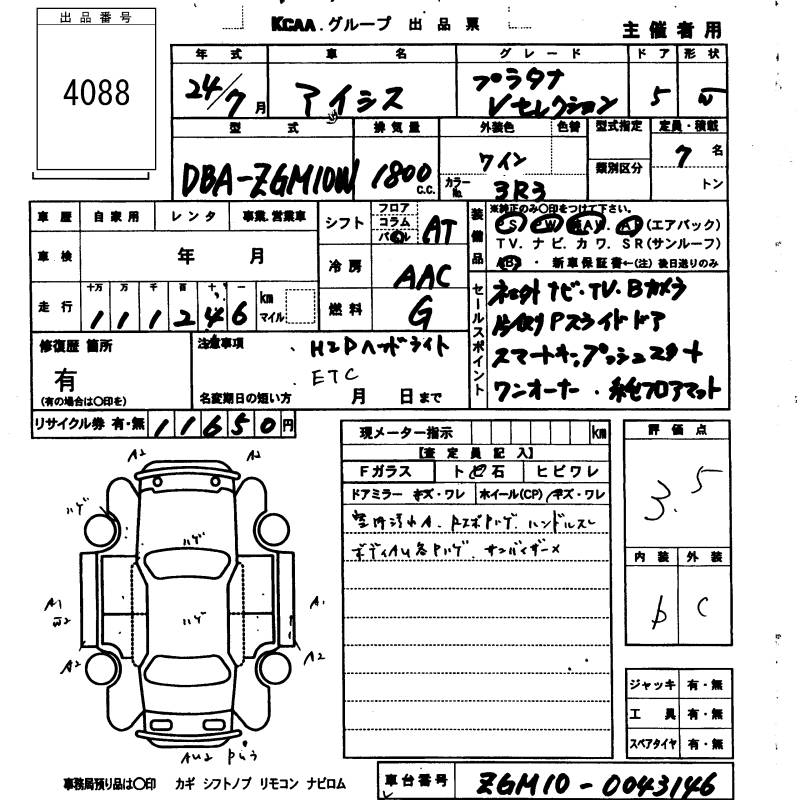 出品番号
4088
KCAA.グループ 出品票
主催者用
年式 車名 グレード ドア 形状
24/7月 アイシス プラタナ Vセレクション 5 W
型式 排気量 外装色 色替 型式指定 定員・積載
DBA-ZGM10W 1800 C.C. ワイン 7名
カラーNo. 3R3 類別区分 トン
車歴 自家用 レンタ 事業.営業車
シフト フロア コラム パネル AT
装備品 ※純正のみ○印をつけて下さい。
PS PW AW AB (エアバック)
TV. ナビ. カワ. SR(サンルーフ)
ABS ・ 新車保証書←(注) 後日送りのみ
車検 年 月
冷房 AAC
走行 十万 万 千 百 十 一
1 1 1 2 4 6 km マイル
燃料 G
セールスポイント
社外ナビ・TV・Bカメラ
片側Pスライドドア
スマートキー プッシュスタート
ワンオーナー・純正フロアマット
修復歴 箇所
有
(有の場合は○印を)
注意事項
・HIDヘッドライト
・ETC
名変期日の短い方 月 日まで
リサイクル券 有・無 11650円
現メーター指示 km
【査定員記入】
Fガラス トビ石 ヒビワレ
ドアミラー キズ・ワレ ホイール(CP) キズ・ワレ
室内汚れA. ハンドルスレ
サンバイザーメ
評価点
3.5
内装 外装
b C
A2 A2
ハゲ
ハゲ
ハゲ
A1 W2
A1
A2 A2
AU2
ジャッキ 有・無
工具 有・無
スペアタイヤ 有・無
事務局預り品は○印 カギ シフトノブ リモコン ナビロム
車台番号 ZGM10-0043146